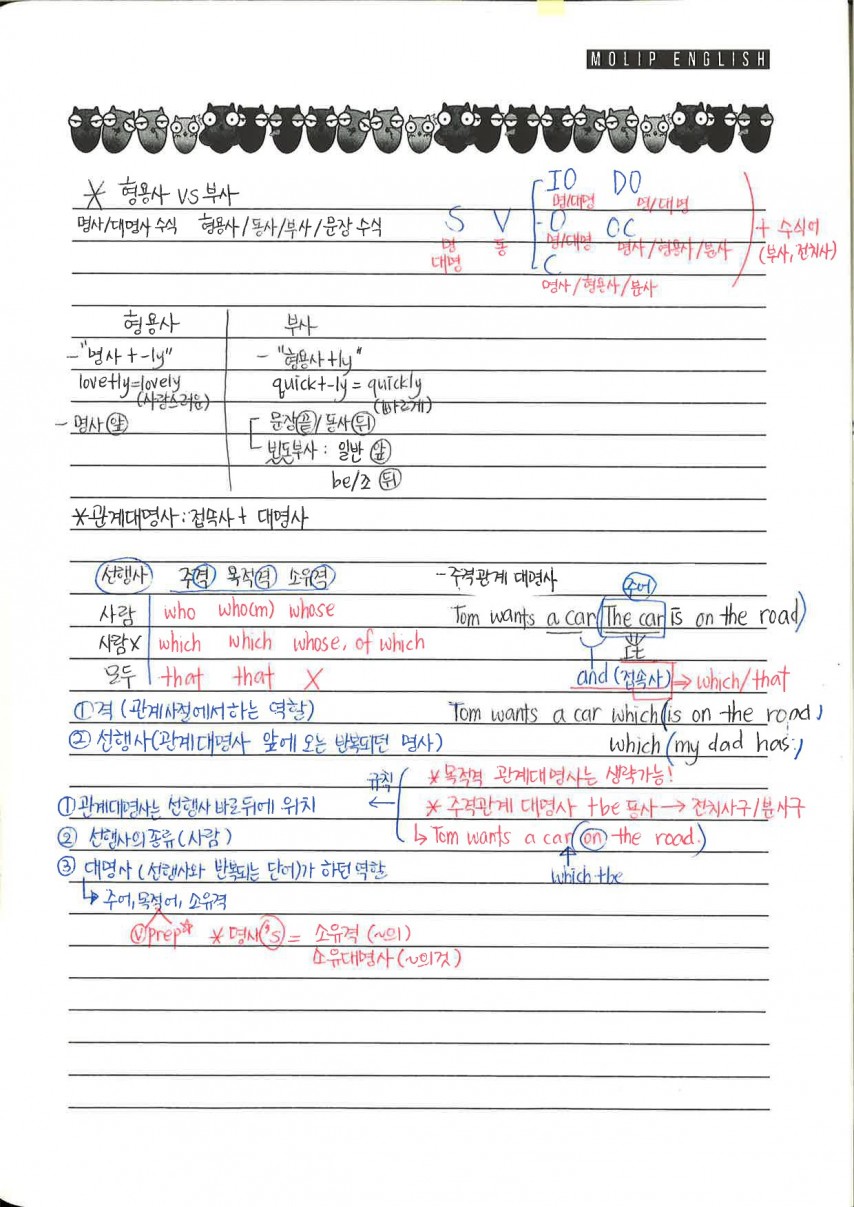 MOLIP ENGLISH
* 형용사 VS 부사
명사/대명사 수식 형용사/동사/부사/문장 수식
IO DO
명/대명 명/대명
S V O OC
명 대명 동 명/대명 명사/형용사/분사
C
명사/형용사/분사
+ 수식어
(부사, 전치사)
형용사 부사
- "명사+-ly" - "형용사+ly"
love+ly=lovely quick+-ly = quickly
(사랑스러운) (빠르게)
- 명사 앞 문장 끝/동사 뒤
빈도부사 : 일반 앞
be/조 뒤
* 관계대명사 : 접속사 + 대명사
선행사 주격 목적격 소유격
사람 who who(m) whose
사람X which which whose, of which
모두 that that X
① 격 (관계사절에서 하는 역할)
② 선행사(관계대명사 앞에 오는 반복되던 명사)
- 주격관계 대명사
주어
Tom wants a car (The car is on the road)
it
and (접속사) → which/that
Tom wants a car which (is on the road)
which (my dad has.)
규칙
① 관계대명사는 선행사 바로 뒤에 위치
② 선행사의 종류 (사람)
③ 대명사 (선행사와 반복되는 단어)가 하던 역할
↳ 주어, 목적어, 소유격
* 목적격 관계대명사는 생략가능!
* 주격관계 대명사 +be 동사 → 전치사구/분사구
↳ Tom wants a car (on the road.)
which+be
ⓥ prep * 명사's = 소유격 (~의)
소유대명사 (~의것)